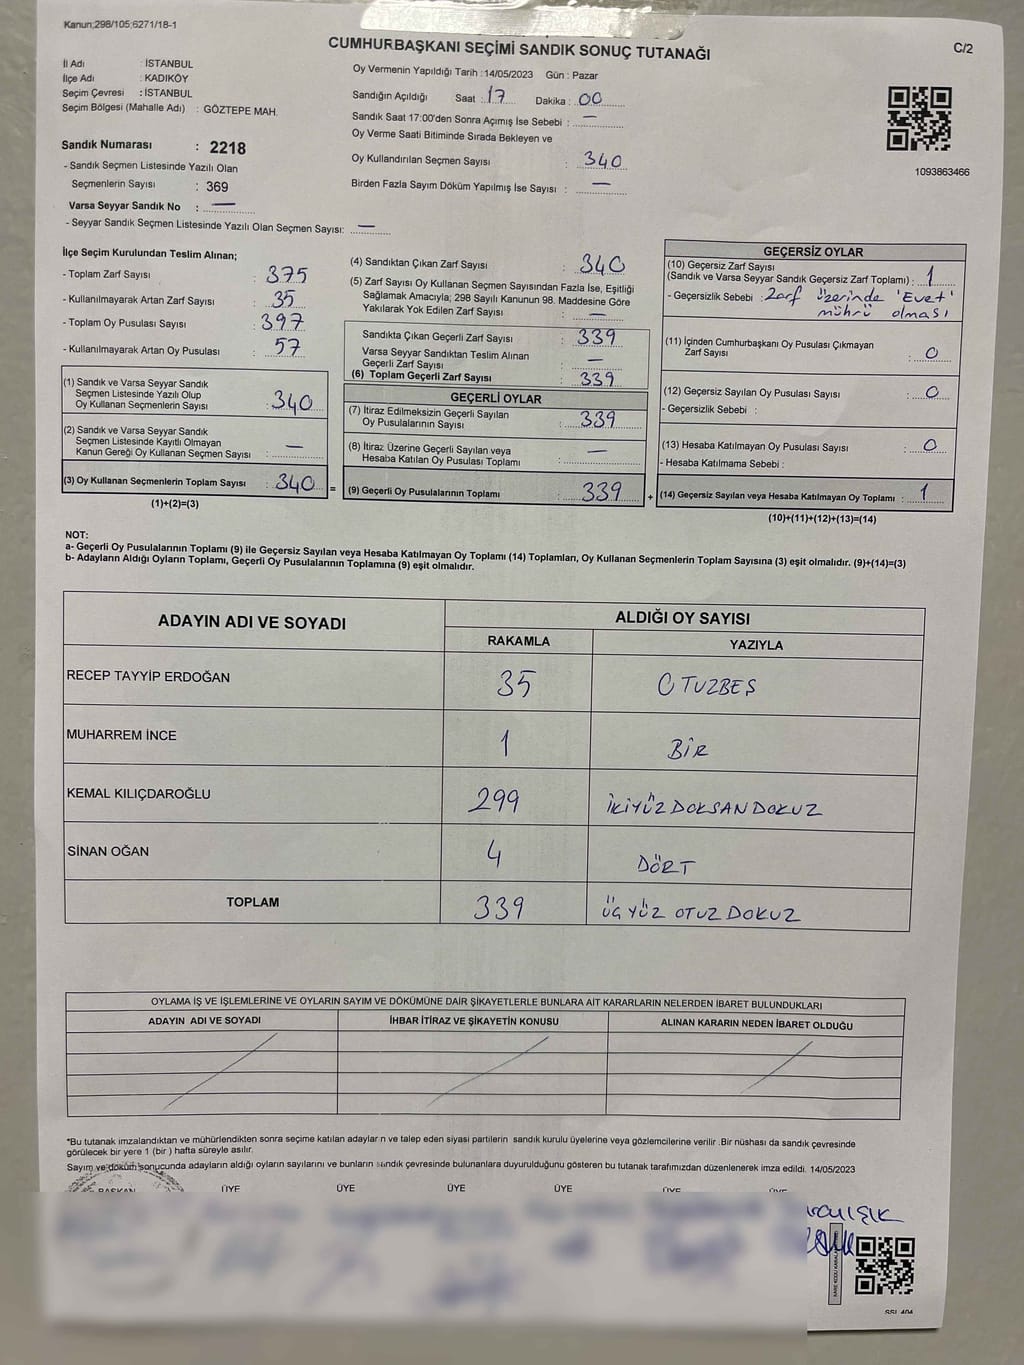 Kanun;298/105;6271/18-1
CUMHURBAŞKANI SEÇİMİ SANDIK SONUÇ TUTANAĞI
C/2
İl Adı : İSTANBUL
İlçe Adı : KADIKÖY
Seçim Çevresi : İSTANBUL
Seçim Bölgesi (Mahalle Adı) : GÖZTEPE MAH.
Sandık Numarası : 2218
- Sandık Seçmen Listesinde Yazılı Olan
Seçmenlerin Sayısı : 369
Varsa Seyyar Sandık No : —
- Seyyar Sandık Seçmen Listesinde Yazılı Olan Seçmen Sayısı: —
Oy Vermenin Yapıldığı Tarih : 14/05/2023 Gün : Pazar
Sandığın Açıldığı Saat : 17 Dakika : 00
Sandık Saat 17:00'den Sonra Açımış İse Sebebi : —
Oy Verme Saati Bitiminde Sırada Bekleyen ve
Oy Kullandırılan Seçmen Sayısı : 340
Birden Fazla Sayım Döküm Yapılmış İse Sayısı : —
1093863466
İlçe Seçim Kurulundan Teslim Alınan;
- Toplam Zarf Sayısı : 375
- Kullanılmayarak Artan Zarf Sayısı : 35
- Toplam Oy Pusulası Sayısı : 397
- Kullanılmayarak Artan Oy Pusulası : 57
(1) Sandık ve Varsa Seyyar Sandık
Seçmen Listesinde Yazılı Olup
Oy Kullanan Seçmenlerin Sayısı : 340
(2) Sandık ve Varsa Seyyar Sandık
Seçmen Listesinde Kayıtlı Olmayan
Kanun Gereği Oy Kullanan Seçmen Sayısı : —
(3) Oy Kullanan Seçmenlerin Toplam Sayısı : 340 =
(1)+(2)=(3)
(4) Sandıktan Çıkan Zarf Sayısı : 340
(5) Zarf Sayısı Oy Kullanan Seçmen Sayısından Fazla İse, Eşitliği
Sağlamak Amacıyla; 298 Sayılı Kanunun 98. Maddesine Göre
Yakılarak Yok Edilen Zarf Sayısı : —
Sandıkta Çıkan Geçerli Zarf Sayısı : 339
Varsa Seyyar Sandıktan Teslim Alınan
Geçerli Zarf Sayısı : —
(6) Toplam Geçerli Zarf Sayısı : 339
GEÇERLİ OYLAR
(7) İtiraz Edilmeksizin Geçerli Sayılan
Oy Pusulalarının Sayısı : 339
(8) İtiraz Üzerine Geçerli Sayılan veya
Hesaba Katılan Oy Pusulası Toplamı : —
(9) Geçerli Oy Pusulalarının Toplamı : 339 +
GEÇERSİZ OYLAR
(10) Geçersiz Zarf Sayısı
(Sandık ve Varsa Seyyar Sandık Geçersiz Zarf Toplamı) : 1
- Geçersizlik Sebebi : Zarf üzerinde 'Evet'
mührü olması
(11) İçinden Cumhurbaşkanı Oy Pusulası Çıkmayan
Zarf Sayısı : 0
(12) Geçersiz Sayılan Oy Pusulası Sayısı : 0
- Geçersizlik Sebebi :
(13) Hesaba Katılmayan Oy Pusulası Sayısı : 0
- Hesaba Katılmama Sebebi :
(14) Geçersiz Sayılan veya Hesaba Katılmayan Oy Toplamı : 1
(10)+(11)+(12)+(13)=(14)
NOT:
a- Geçerli Oy Pusulalarının Toplamı (9) ile Geçersiz Sayılan veya Hesaba Katılmayan Oy Toplamı (14) Toplamları, Oy Kullanan Seçmenlerin Toplam Sayısına (3) eşit olmalıdır. (9)+(14)=(3)
b- Adayların Aldığı Oyların Toplamı, Geçerli Oy Pusulalarının Toplamına (9) eşit olmalıdır.
ADAYIN ADI VE SOYADI ALDIĞI OY SAYISI
RAKAMLA YAZIYLA
RECEP TAYYİP ERDOĞAN 35 OTUZBEŞ
MUHARREM İNCE 1 BİR
KEMAL KILIÇDAROĞLU 299 İKİYÜZ DOKSAN DOKUZ
SİNAN OĞAN 4 DÖRT
TOPLAM 339 ÜÇ YÜZ OTUZ DOKUZ
OYLAMA İŞ VE İŞLEMLERİNE VE OYLARIN SAYIM VE DÖKÜMÜNE DAİR ŞİKAYETLERLE BUNLARA AİT KARARLARIN NELERDEN İBARET BULUNDUKLARI
ADAYIN ADI VE SOYADI İHBAR İTİRAZ VE ŞİKAYETİN KONUSU ALINAN KARARIN NEDEN İBARET OLDUĞU
*Bu tutanak imzalandıktan ve mühürlendikten sonra seçime katılan adaylar n ve talep eden siyasi partilerin sandık kurulu üyelerine veya gözlemcilerine verilir .Bir nüshası da sandık çevresinde
görülecek bir yere 1 (bir ) hafta süreyle asılır.
Sayım ve döküm sonucunda adayların aldığı oyların sayılarını ve bunların sandık çevresinde bulunanlara duyurulduğunu gösteren bu tutanak tarafımızdan düzenlenerek imza edildi. 14/05/2023
BAŞKAN ÜYE ÜYE ÜYE ÜYE ÜYE ÜYE